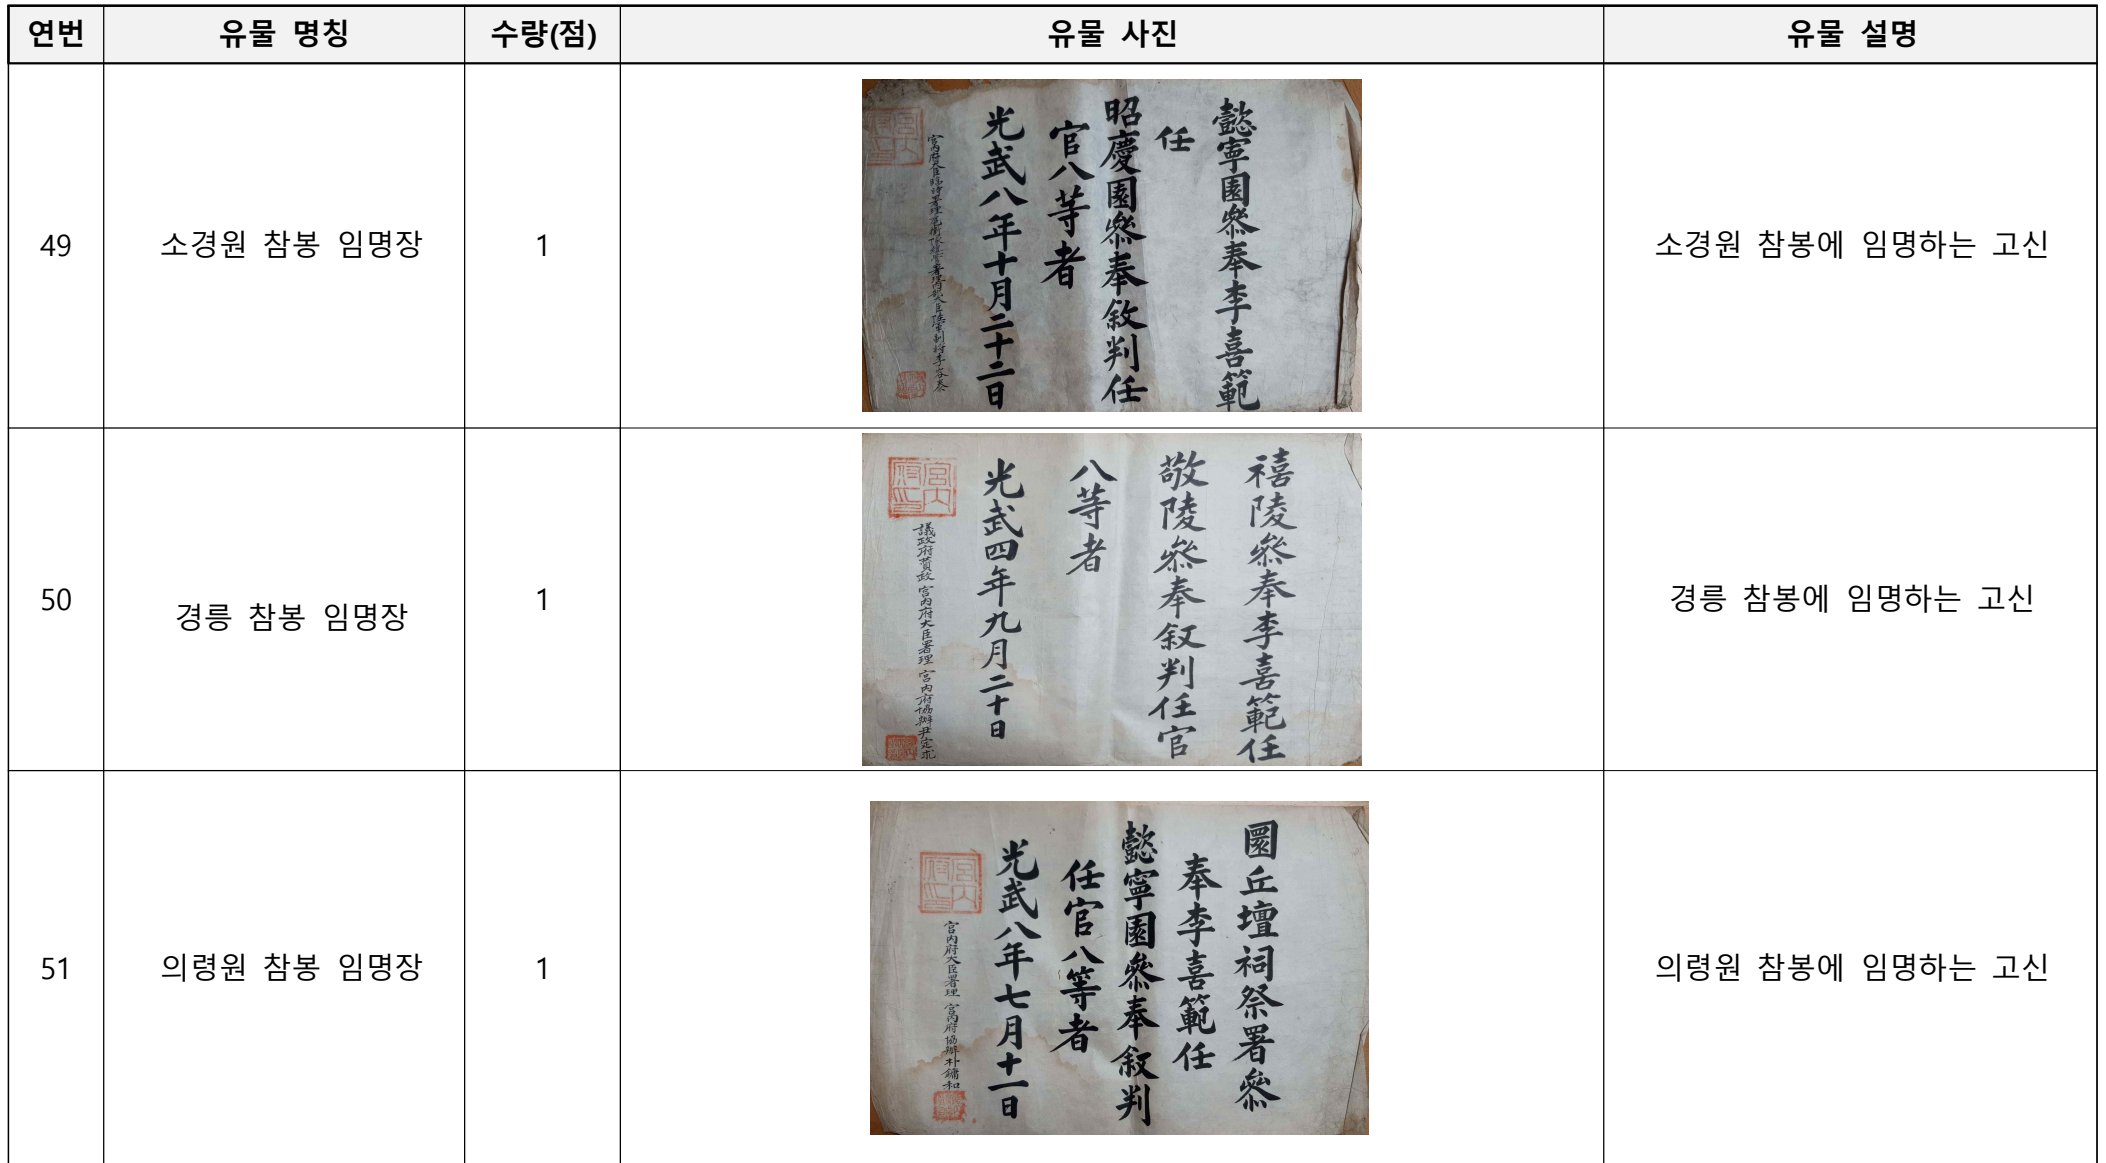 연번 유물 명칭 수량(점) 유물 사진 유물 설명
49 소경원 참봉 임명장 1
懿寧園叅奉李喜範
任
昭慶園叅奉敘判任
官八等者
光武八年十月二十二日
소경원 참봉에 임명하는 고신
50 경릉 참봉 임명장 1
禧陵叅奉李喜範任
敬陵叅奉叙判任官
八等者
光武四年九月二十日
議政府贊政 宮內府大臣署理 宮內府協辦尹定求
宮內府印
경릉 참봉에 임명하는 고신
51 의령원 참봉 임명장 1
圜丘壇祠祭署叅
奉李喜範任
懿寧園叅奉叙判
任官八等者
光武八年七月十一日
宮內府大臣署理 宮內府協辦朴鏞和
宮內府印
의령원 참봉에 임명하는 고신